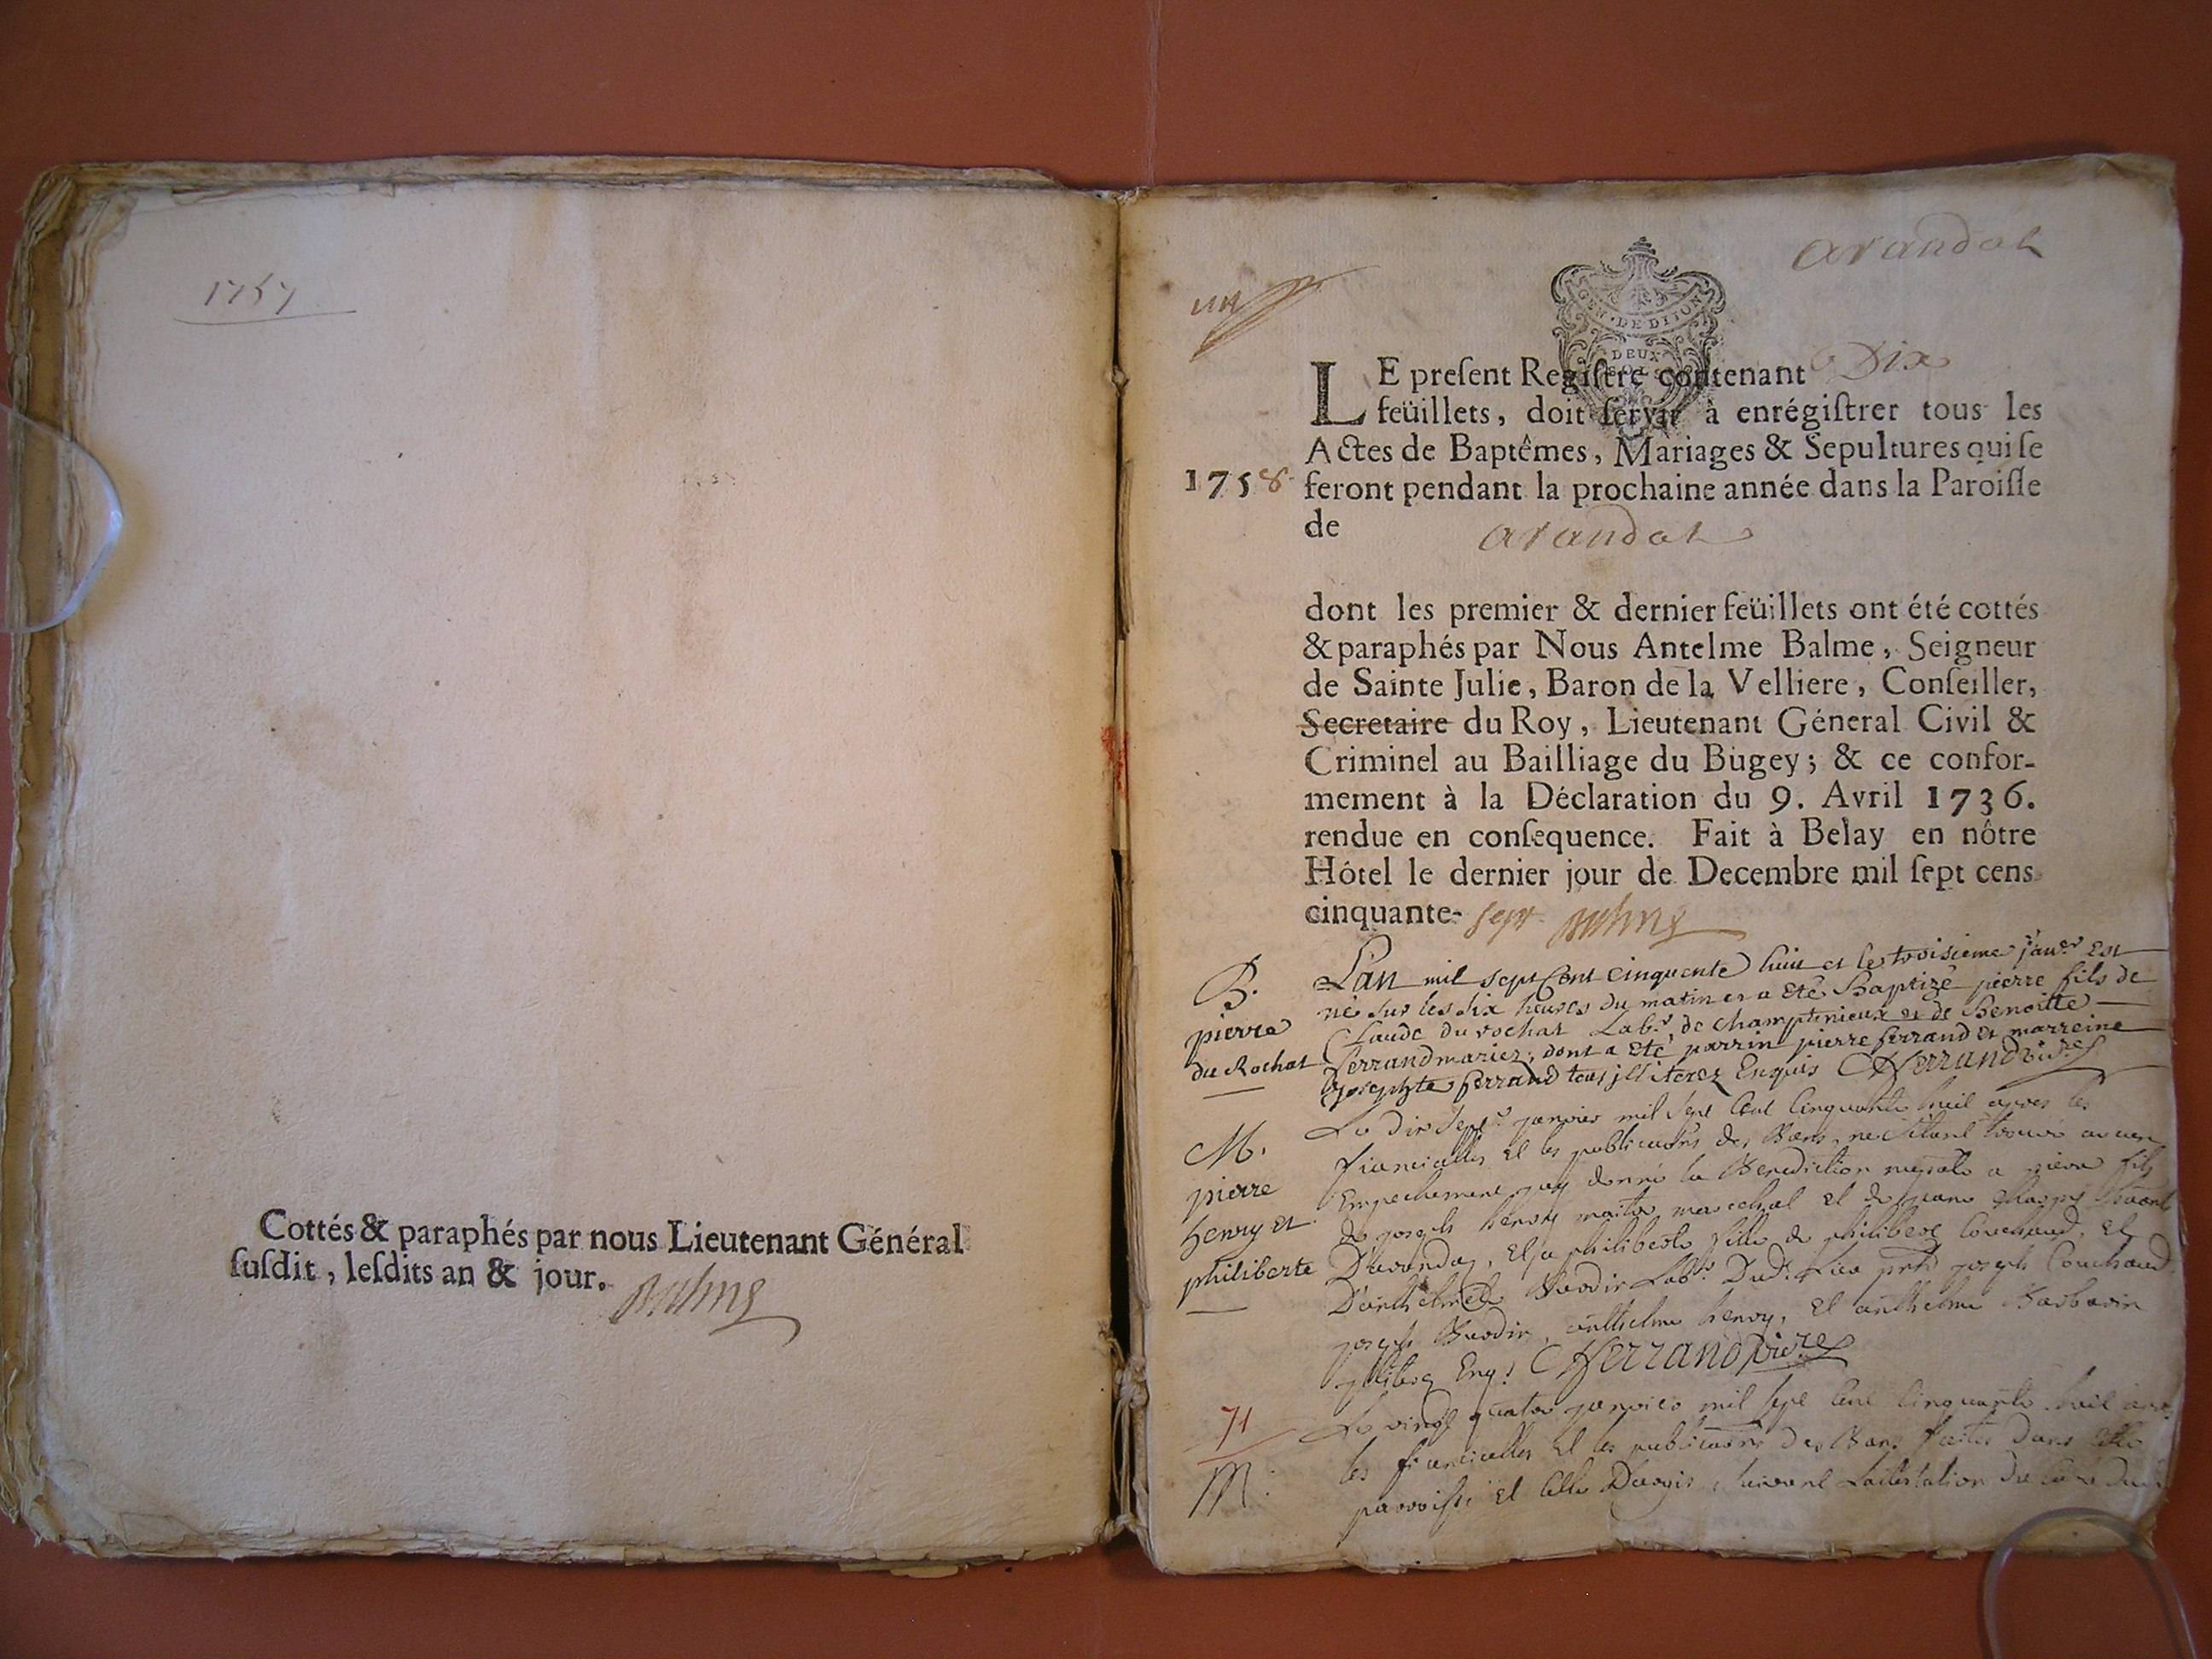 1757
Cottés & paraphés par nous Lieutenant Général
ſuſdit, leſdits an & jour.
arandat
un
GEN. DE DIJON
DEUX
LE preſent Regiſtre contenant Dix
feüillets, doit ſervir à enrégiſtrer tous les
Actes de Baptêmes, Mariages & Sepultures qui ſe
1758. feront pendant la prochaine année dans la Paroiſſe
de arandat
dont les premier & dernier feüillets ont été cottés
& paraphés par Nous Antelme Balme, Seigneur
de Sainte Julie, Baron de la Velliere, Conſeiller,
Secretaire du Roy, Lieutenant Géneral Civil &
Criminel au Bailliage du Bugey; & ce confor-
mement à la Déclaration du 9. Avril 1736.
rendue en conſequence. Fait à Belay en nôtre
Hótel le dernier jour de Decembre mil ſept cens
cinquante- sept
B.
pierre
du Rochat
Lan mil sept Cent cinquente huit et le troisieme janer Est
né sur les dix heures du matin et a Eté Baptizé pierre fils de
Claude du rochat Labr de champtenieux et de Benoitte
ferrand mariez, dont a Eté parrin pierre ferrand et marreine
josephte ferrand tous illiterez Enquis Ferrand vicre
M.
pierre
henry et
philiberte
Le dix sept janvier mil sept Cent Cinquante huit apres les
fiancialles et les publications des Bans, ne s'etant trouvé aucun
Empechement j'ay donné la Benediction nuptiale a pierre fils
de joseph henry maitre marechal et de jeane
Darandaz, Et a philiberte fille de philibert Couchaud, Et
D'anthelmette Bardin Labrs Dud. Lieu joseph Couchaud
joseph Bardin, anthelme henry, Et anthelme Barbarin
Enq. Ferrand vicre
71
M.
Le vingt quatre janvier mil sept Cent Cinquante huit
les fiancialles Et les publications des Bans faites dans
parroisse Et Celle Dargis, suivant Lattestation du